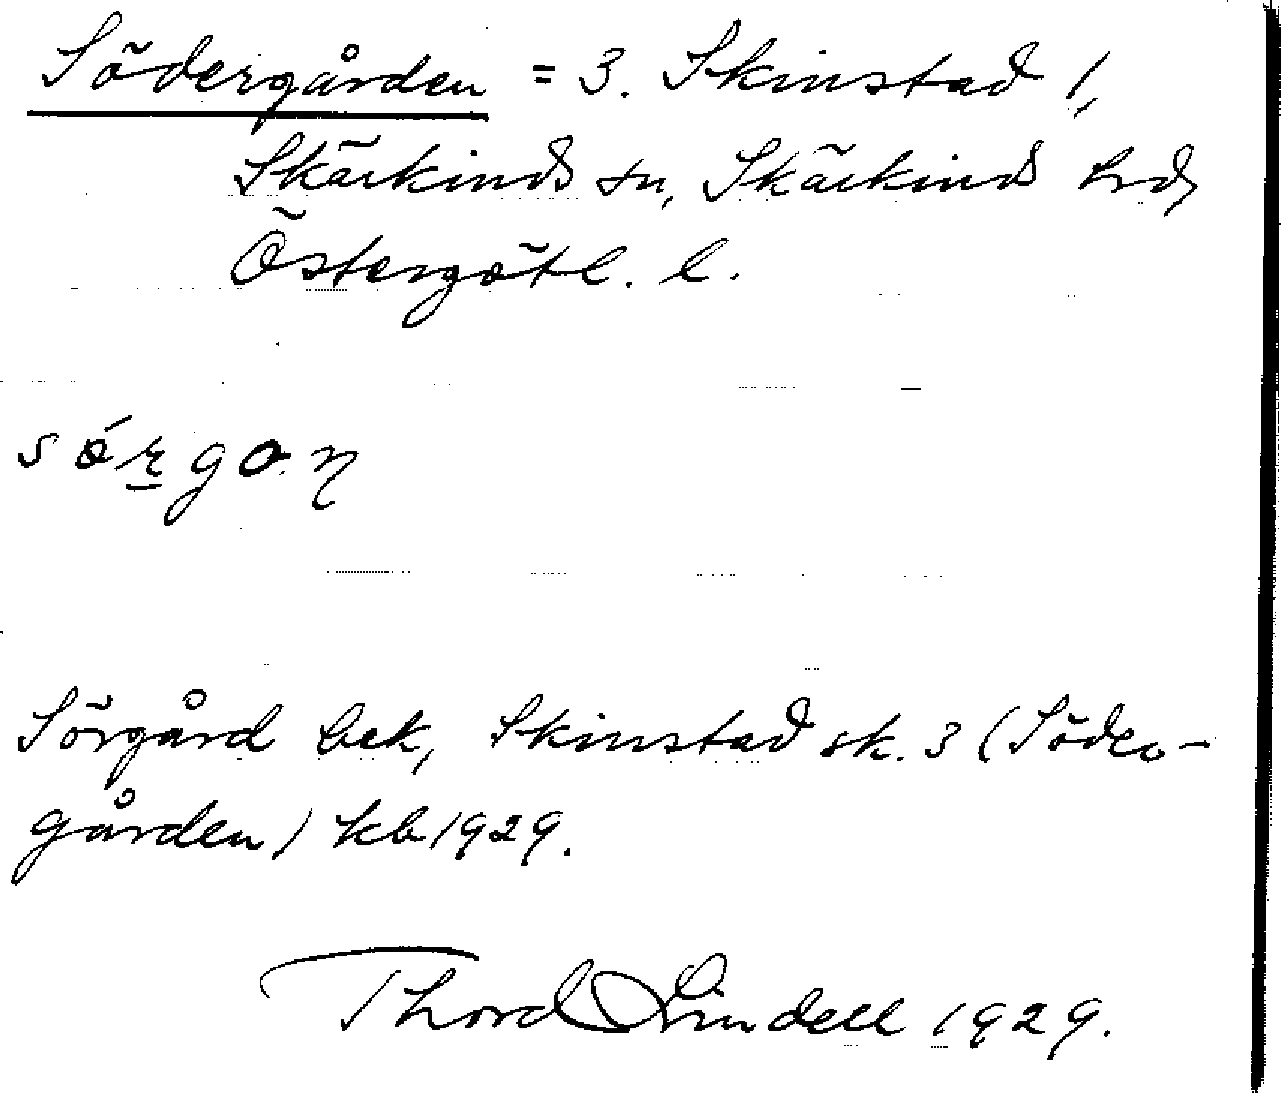 Södergården = 3. Skinstad 1,
Skärkinds sn, Skärkinds hd,
Östergötl. l.
sǿrgo.n
Sörgård bek, Skinstad sk. 3 (Söder-
gården) kb 1929.
Thord Lindell 1929.